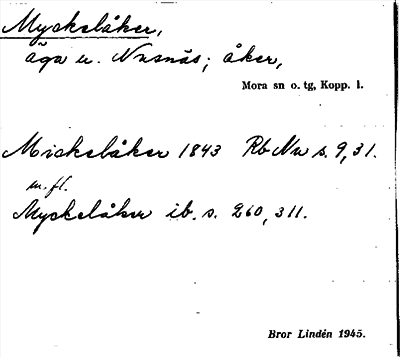 Myckelåker,
äga u. Nusnäs; åker,
Mora sn o. tg, Kopp. l.
Mickelåker 1843 Rb Nu s. 9, 31.
m. fl.
Myckelåker ib. s. 260, 311.
Bror Lindén 1945.